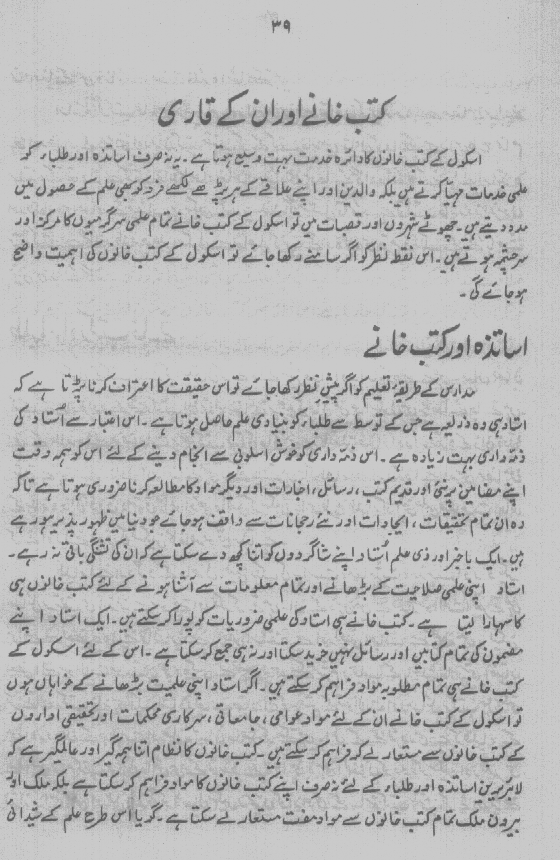 ۳۹
کتب خانے اور ان کے قاری
اسکول کے کتب خانوں کا دائرہ خدمت بہت وسیع ہوتا ہے۔ یہ نہ صرف اساتذہ اور طلباء کو
علمی خدمات مہیا کرتے ہیں بلکہ والدین اور اپنے علاقے کے ہر پڑھے لکھے فرد کو بھی علم کے حصول میں
مدد دیتے ہیں۔ چھوٹے شہروں اور قصبات میں تو اسکول کے کتب خانے تمام علمی سرگرمیوں کا مرکز اور
سرچشمہ ہوتے ہیں۔ اس نقطہ نظر کو اگر سامنے رکھا جائے تو اسکول کے کتب خانوں کی اہمیت واضح
ہو جائے گی۔
اساتذہ اور کتب خانے
مدارس کے طریقۂ تعلیم کو اگر پیش نظر رکھا جائے تو اس حقیقت کا اعتراف کرنا پڑتا ہے کہ
استاد ہی وہ ذریعہ ہے جس کے توسط سے طلباء کو بنیادی علم حاصل ہوتا ہے۔ اس اعتبار سے استاد کی
ذمہ داری بہت زیادہ ہے۔ اس ذمہ داری کو خوش اسلوبی سے انجام دینے کے لئے اس کو ہمہ وقت
اپنے مضامین پر نئی اور قدیم کتب، رسائل، اخبارات اور دیگر مواد کا مطالعہ کرنا ضروری ہوتا ہے تاکہ
وہ ان تمام تحقیقات، ایجادات اور نئے رجحانات سے واقف ہو جائے جو دنیا میں ظہور پذیر ہو رہے
ہیں۔ ایک باخبر اور ذی علم اُستاد اپنے شاگردوں کو اتنا کچھ دے سکتا ہے کہ ان کی تشنگی باقی نہ رہے۔
استاد اپنی علمی صلاحیت کے بڑھانے اور تمام معلومات سے آشنا ہونے کے لئے کتب خانوں ہی
کا سہارا لیتا ہے۔ کتب خانے ہی استاد کی علمی ضروریات کو پورا کر سکتے ہیں۔ ایک استاد اپنے
مضمون کی تمام کتابیں اور رسائل نہیں خرید سکتا اور نہ ہی جمع کر سکتا ہے۔ اس کے لئے اسکول کے
کتب خانے ہی تمام مطلوبہ مواد فراہم کر سکتے ہیں۔ اگر استاد اپنی علمیت بڑھانے کے خواہاں ہوں
تو اسکول کے کتب خانے ان کے لئے مواد عوامی، جامعاتی، سرکاری محکمات اور تحقیقی اداروں
کے کتب خانوں سے مستعار لے کر فراہم کر سکتے ہیں۔ کتب خانوں کا نظام اتنا ہمہ گیر اور عالمگیر ہے کہ
لائبریرین اساتذہ اور طلباء کے لئے نہ صرف اپنے کتب خانوں کا مواد فراہم کر سکتا ہے بلکہ ملک اور
بیرون ملک تمام کتب خانوں سے مواد مفت مستعار لے سکتا ہے۔ گویا اس طرح علم کے شیدائی